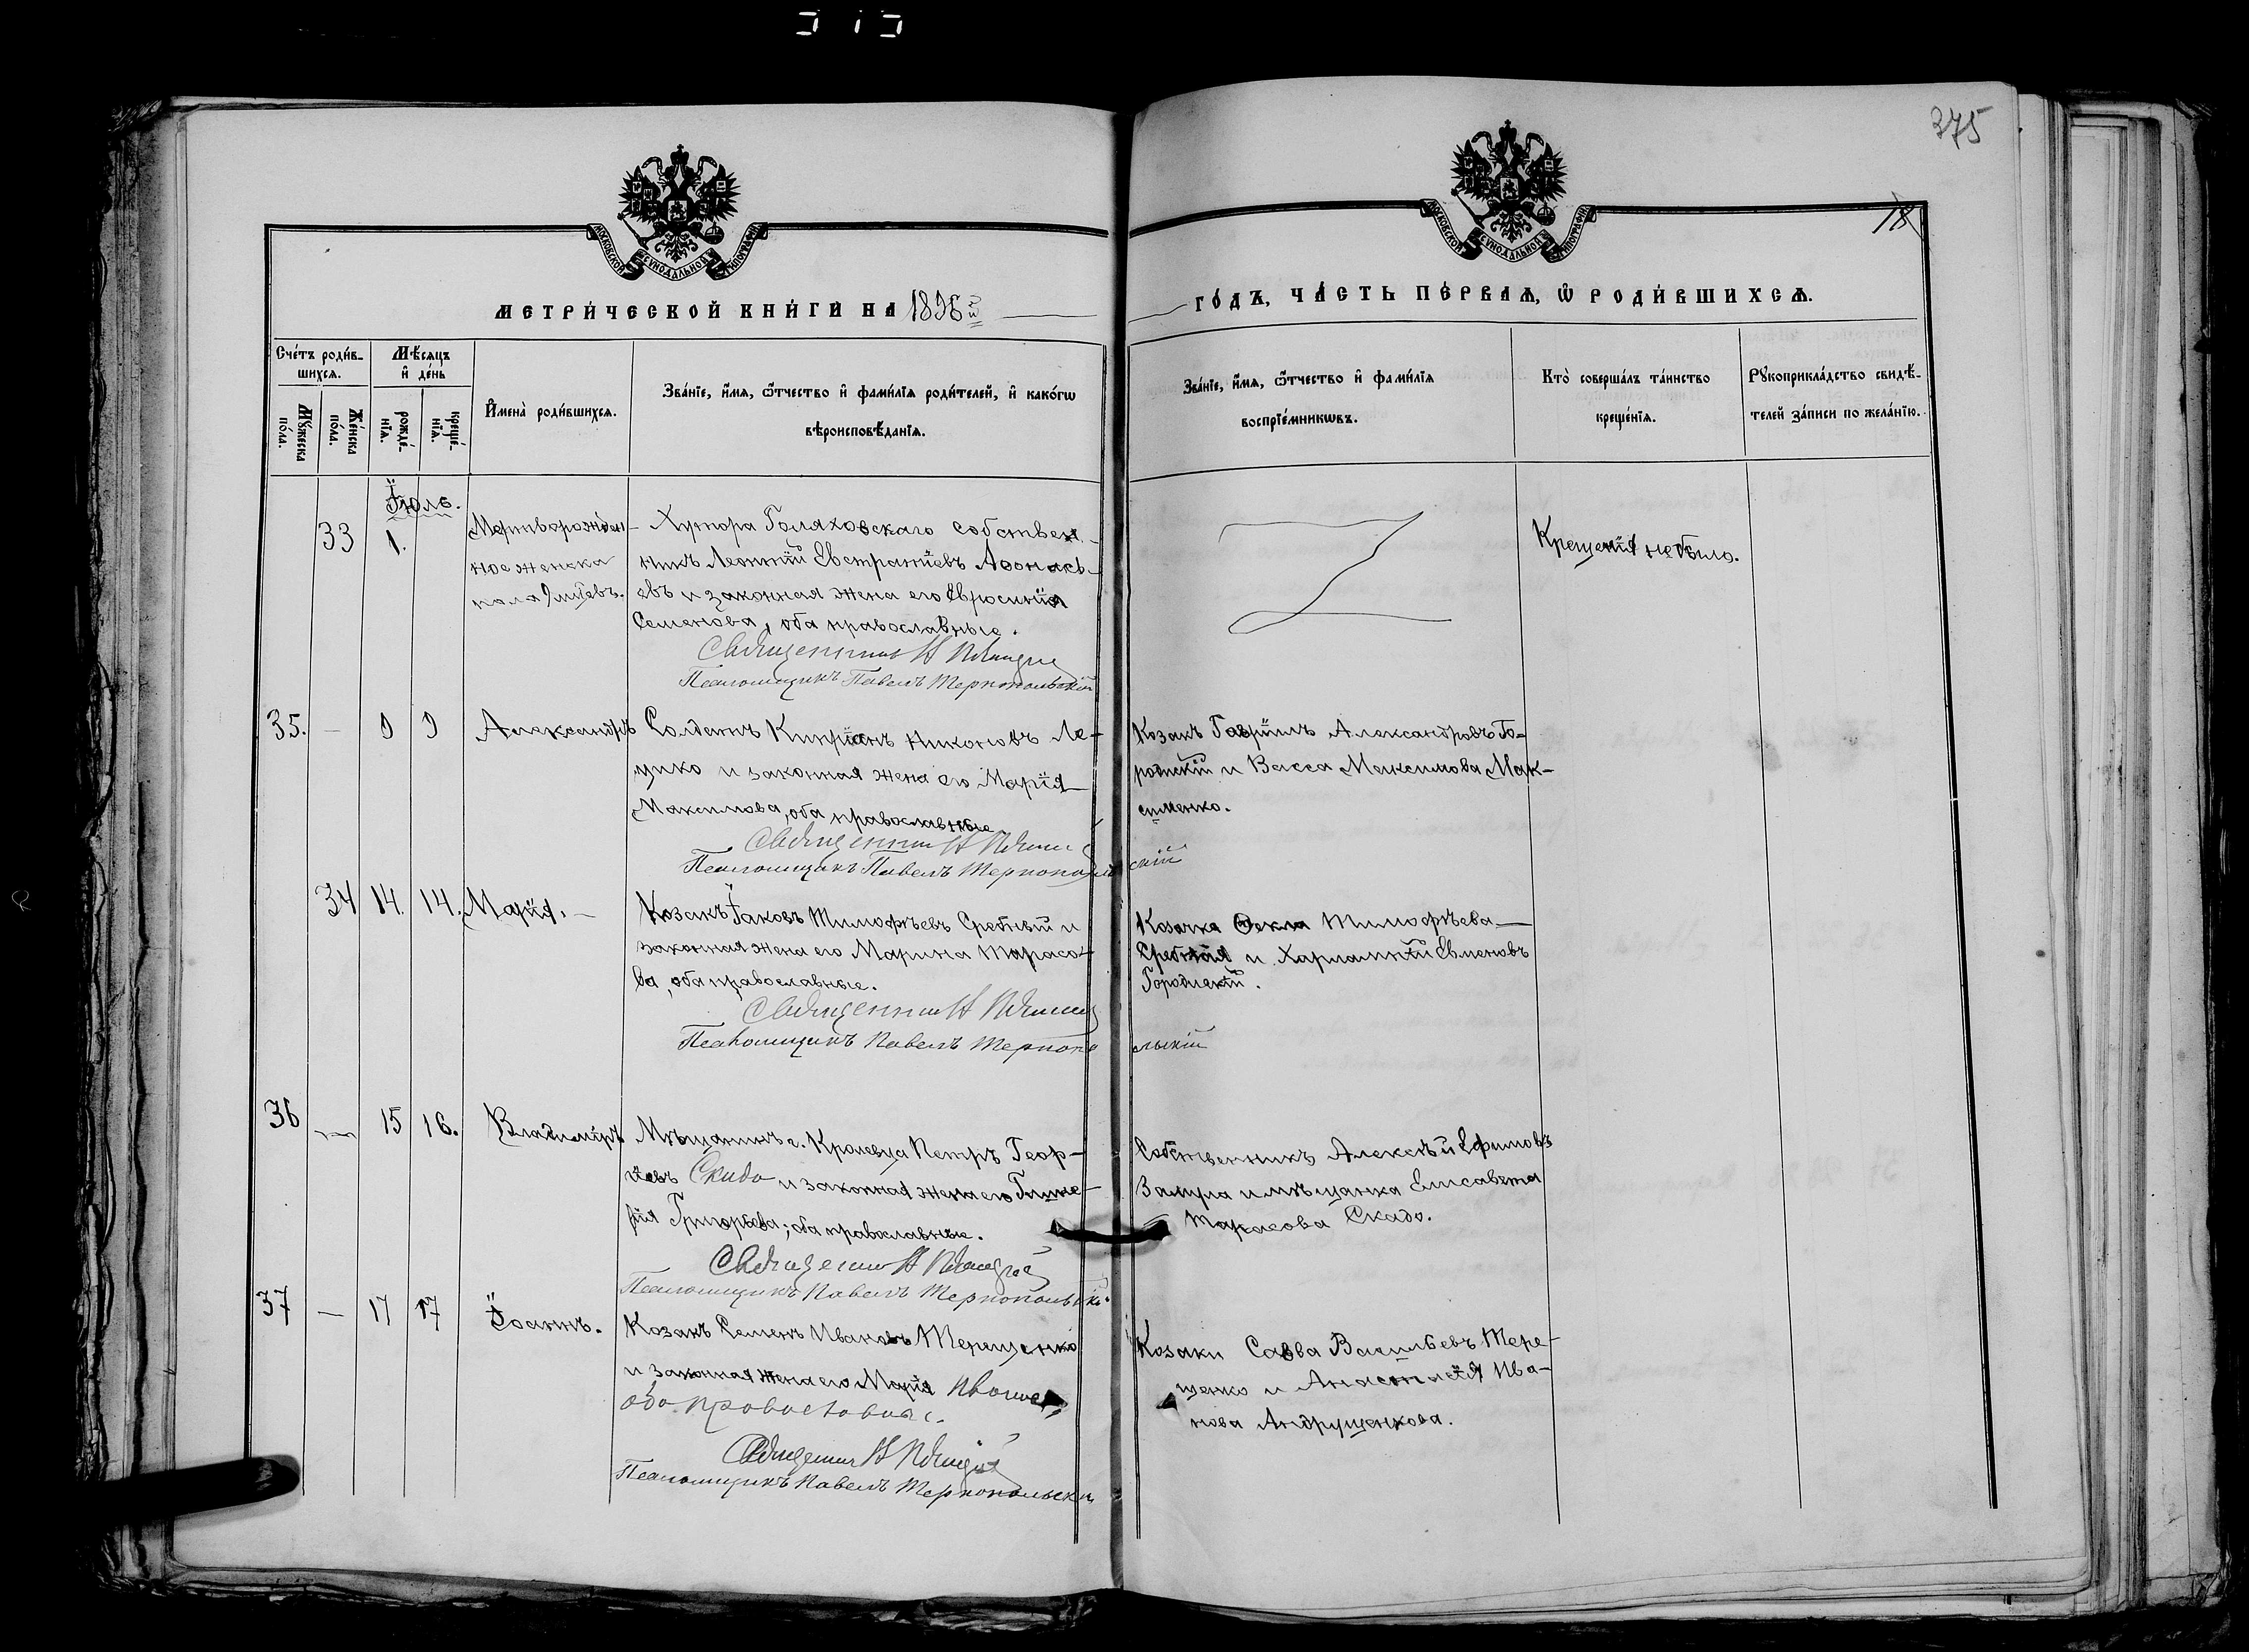 375
18
МОСКОВСКОЙ СѴНОДАЛЬНОЙ ТИПОГРАФІИ
МОСКОВСКОЙ СѴНОДАЛЬНОЙ ТИПОГРАФІИ
МЕТРИ́ЧЕСКОЙ КНИ́ГИ НА 1896й
ГО́ДЪ, ЧА́СТЬ ПЕ́РВАЯ, Ѡ РОДИ́ВШИХСЯ.
Сче́тъ роди́вшихся.
Мꙋ́жеска по́ла.
Же́нска по́ла.
Мѣ́сяцъ и҆ де́нь
рожде́нїѧ.
креще́нїѧ.
И҆мена̀ роди́вшихсѧ.
Зва́нїе, и҆́мѧ, ѻ҆́тчество и҆ фами́лїѧ роди́телей, и҆ како́гѡ
вѣроисповѣ́данїѧ.
Зва́нїе, и҆́мѧ, ѻ҆́тчество и҆ фами́лїѧ
воспрїе́мникѡвъ.
Кто̀ соверша́лъ та́инство
креще́нїѧ.
Рꙋкоприкла́дство свидѣ́-
телей за́писи по жела́нїю.
Іюль.
33
1.
Мертворожден-
ное женска
пола
Хутора Голяховскаго собствен-
никъ Леонтій Евстратіевъ Аѳонась-
евъ и законная жена его Евросинія
Семенова, оба православные.
Священникъ Н
Псаломщикъ Павелъ Тернопольскій
Крещенія небыло.
35. — 9 9 Александръ
Солдатъ Кипріанъ Никоновъ Ле-
щко и законная жена его Марія
Максимова, оба православные
Священникъ Н
Псаломщикъ Павелъ Тернопольскій
Козакъ Гавріилъ Александровъ Го-
родискій и Васса Максимова Мак-
сименко.
34 14. 14. Марія. —
Козакъ Іаковъ Тимофѣевъ Сребный и
законная жена его Марина Тарасо-
ва, оба православные.
Священникъ Н
Псаломщикъ Павелъ Тернопольскій
Козачка Ѳекла Тимофѣева
Сребная и Харлампій Евменовъ
Городискій.
36 — 15 16. Владиміръ
Мѣщанинъ г. Кролевца Петръ Геор-
гіевъ Скидо и законная жена его Глике-
рія Григорьева; оба православные.
Священникъ Н
Псаломщикъ Павелъ Тернопольскій
Собственникъ Алексѣй Ефимовъ
и мѣщанка Елисавета
Тарасова Скадо.
37 — 17 17 Іоаннъ.
Козакъ Семенъ Ивановъ Терещенко
и законная жена его Марія
оба православные.
Священникъ Н
Псаломщикъ Павелъ Тернопольскій
Козаки Савва Васильевъ Тере-
щенко и Анастасія Ива-
нова Андрущенкова.